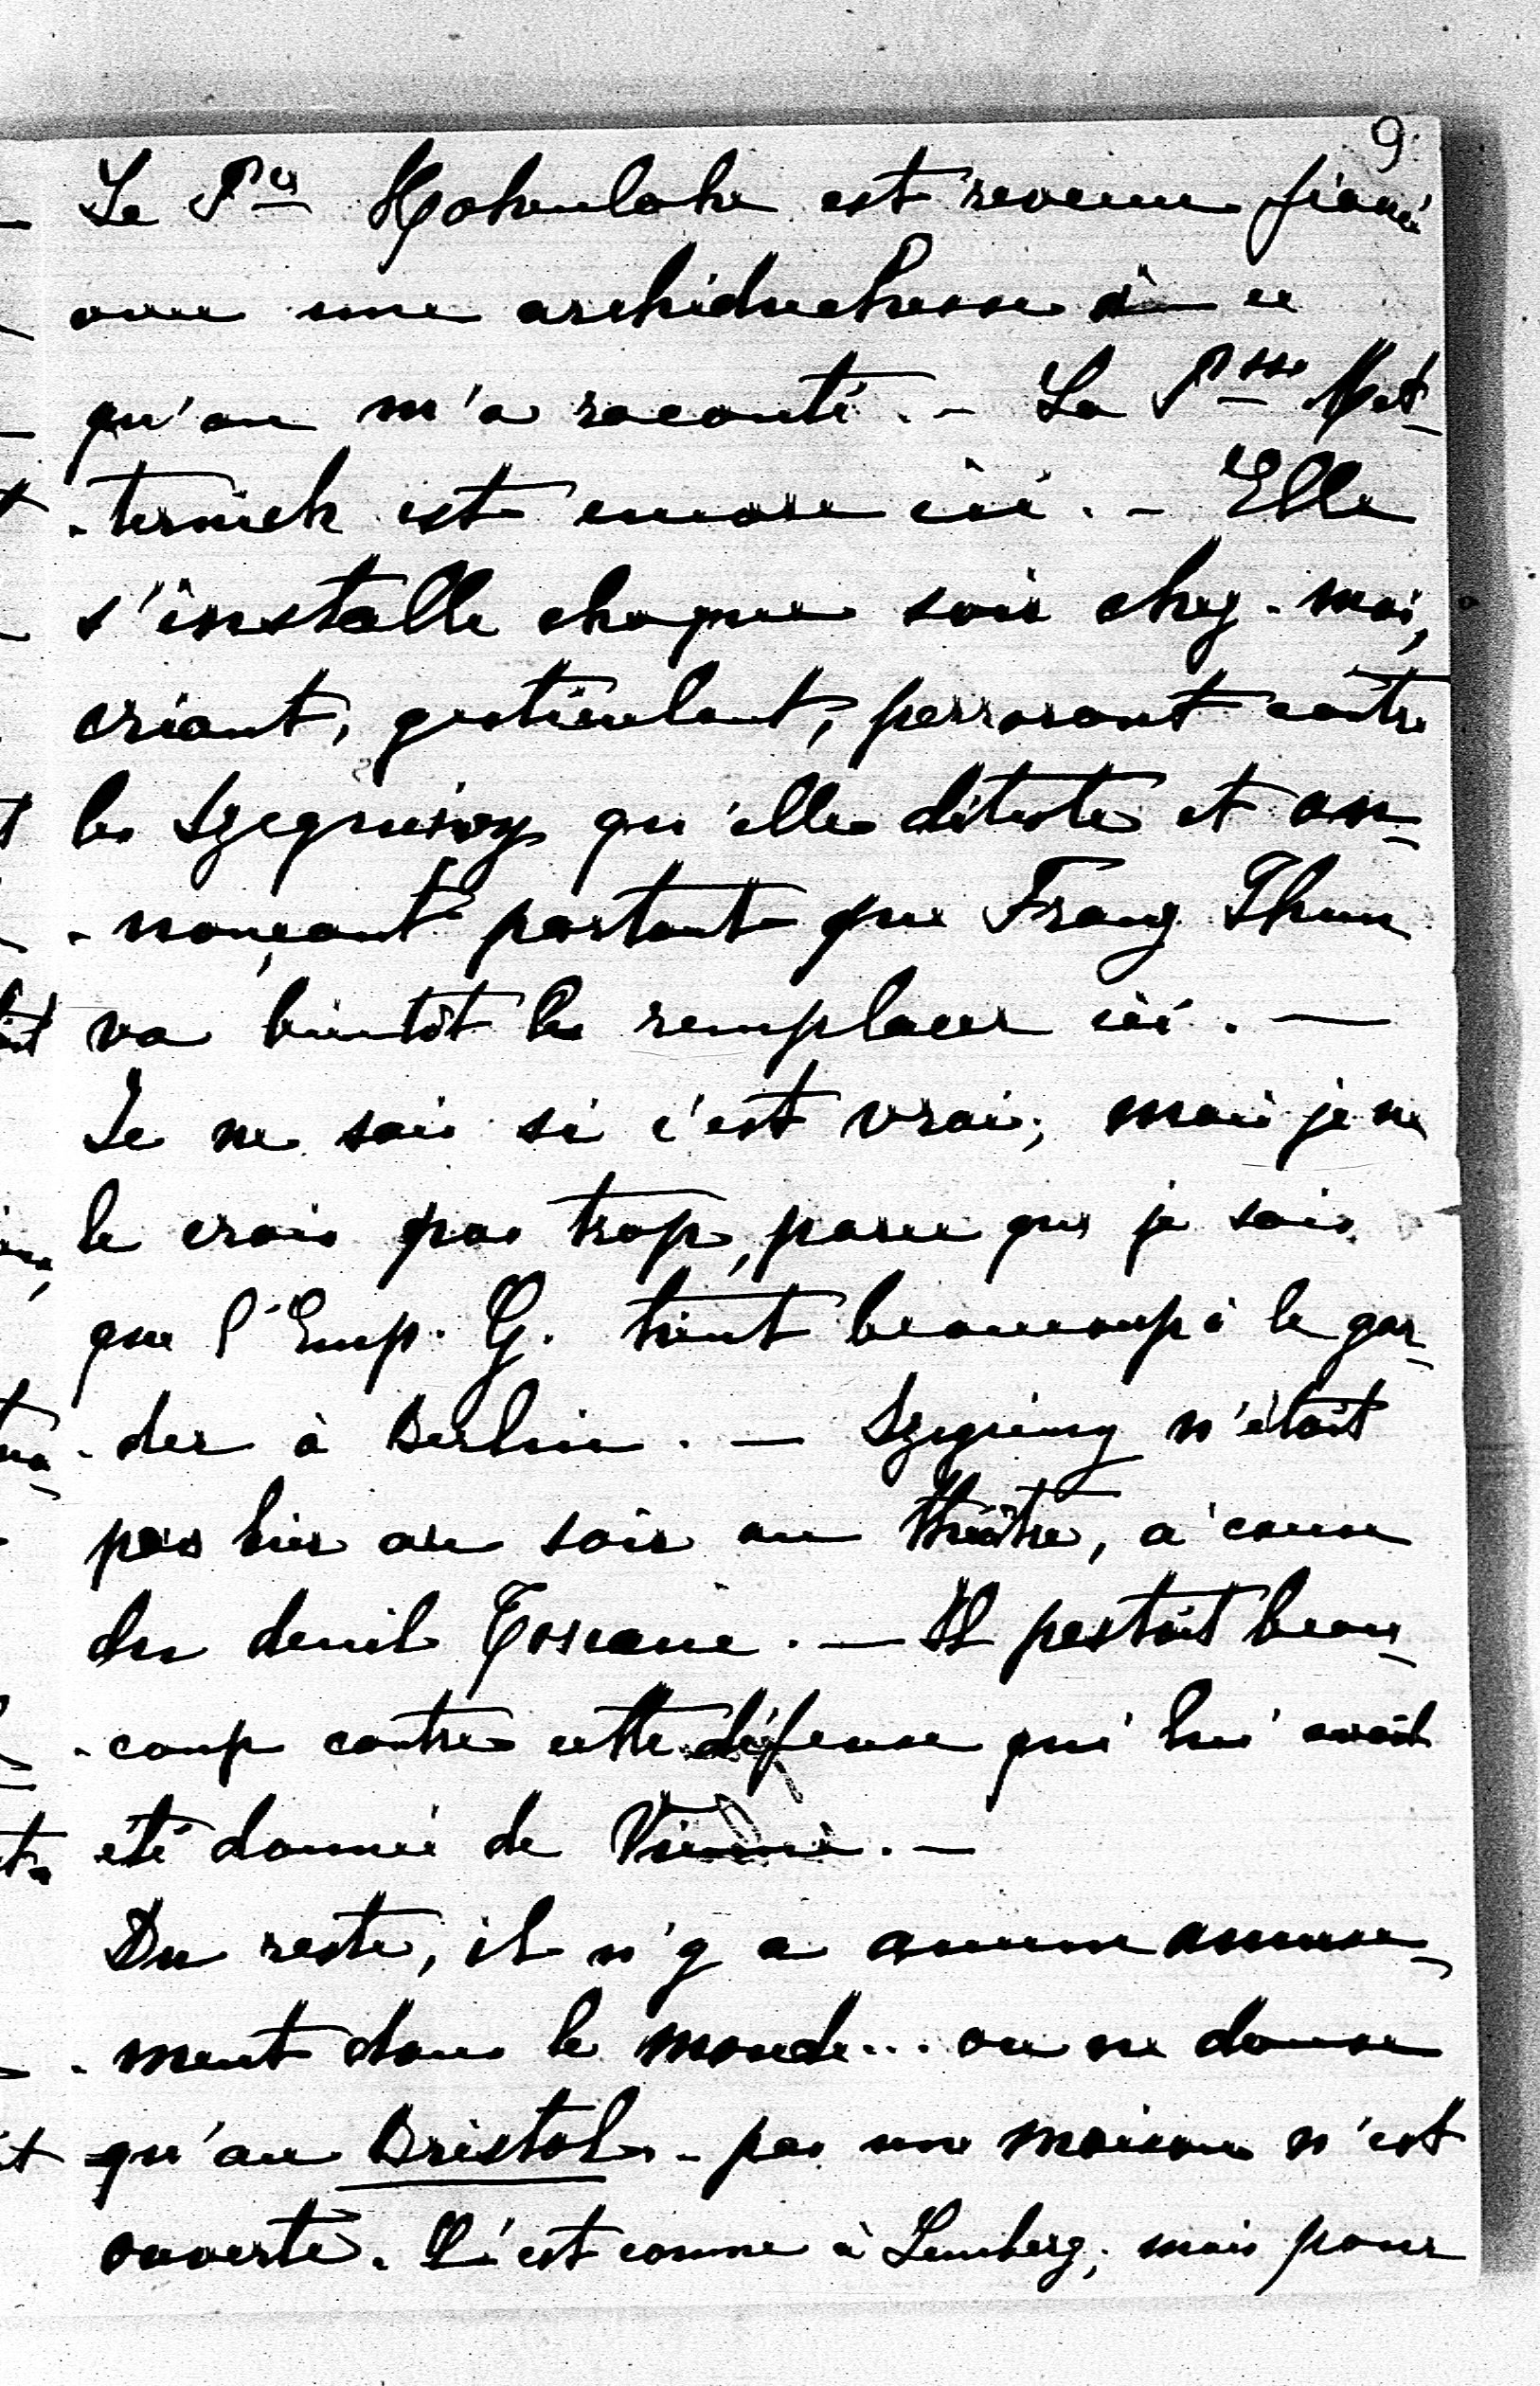 9.
Le P^ce Hohenlohe est revenu fiancé
avec une archiduchesse à ce
qu'on m'a raconté. - La P^sse Met-
-ternich est encore ici. - Elle
s'installe chaque soir chez-moi,
criant, gesticulant, perrorant contre
les Szegnieny qu'elle déteste et an-
-nonçant partout que Franz Thun
va bientôt les remplacer ici. —
Je ne sais si c'est vrai; mais je ne
le crois pas trop, parce que je sais
que l'Emp. G. tient beaucoup à le gar-
-der à Berlin. — Szegnieny n'était
pas hier au soir au théâtre, à cause
du deuil Toscane. — Il pestait beau-
-coup contre cette défense qui lui avait
été donnée de Vienne. —
Du reste, il n'y a aucun amuse-
-ment dans le monde... on ne danse
qu'au Bristol - pas une maison n'est
ouverte. C'est comme à Lemberg; mais pour